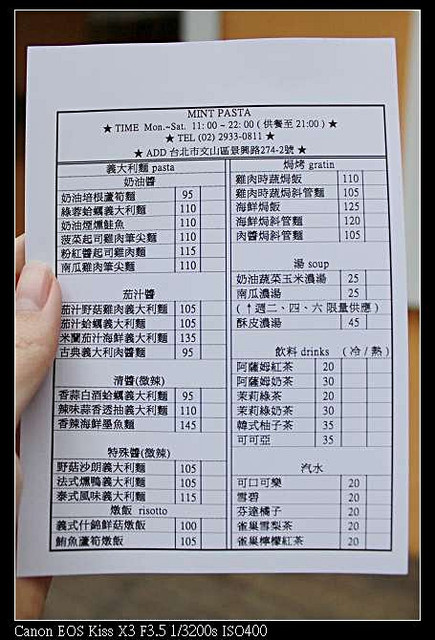 MINT PASTA
★ TIME Mon.~Sat. 11:00 ~ 22:00 ( 供餐至 21:00 ) ★
★ TEL (02) 2933-0811 ★
★ ADD 台北市文山區景興路274-2號 ★
義大利麵 pasta
奶油醬
奶油培根蘆筍麵 95
綠蓉蛤蠣義大利麵 110
奶油煙燻鮭魚 110
菠菜起司雞肉筆尖麵 110
粉紅醬起司雞肉麵 115
南瓜雞肉筆尖麵 110
茄汁醬
茄汁野菇雞肉義大利麵 105
茄汁蛤蠣義大利麵 105
米蘭茄汁海鮮義大利麵 135
古典義大利肉醬麵 95
清醬(微辣)
香蒜白酒蛤蠣義大利麵 95
辣味蒜香透抽義大利麵 110
香辣海鮮墨魚麵 145
特殊醬(微辣)
野菇沙朗義大利麵 105
法式燻鴨義大利麵 105
泰式風味義大利麵 115
燉飯 risotto
義式什錦鮮菇燉飯 100
鮪魚蘆筍燉飯 105
焗烤 gratin
雞肉時蔬焗飯 110
雞肉時蔬焗斜管麵 105
海鮮焗飯 125
海鮮焗斜管麵 120
肉醬焗斜管麵 105
湯 soup
奶油蔬菜玉米濃湯 25
南瓜濃湯 25
( ↑週二、四、六 限量供應 )
酥皮濃湯 45
飲料 drinks ( 冷 / 熱 )
阿薩姆紅茶 20
阿薩姆奶茶 30
茉莉綠茶 20
茉莉綠奶茶 30
韓式柚子茶 35
可可亞 35
汽水
可口可樂 20
雪碧 20
芬達橘子 20
雀巢雪梨茶 20
雀巢檸檬紅茶 20
Canon EOS Kiss X3 F3.5 1/3200s ISO400